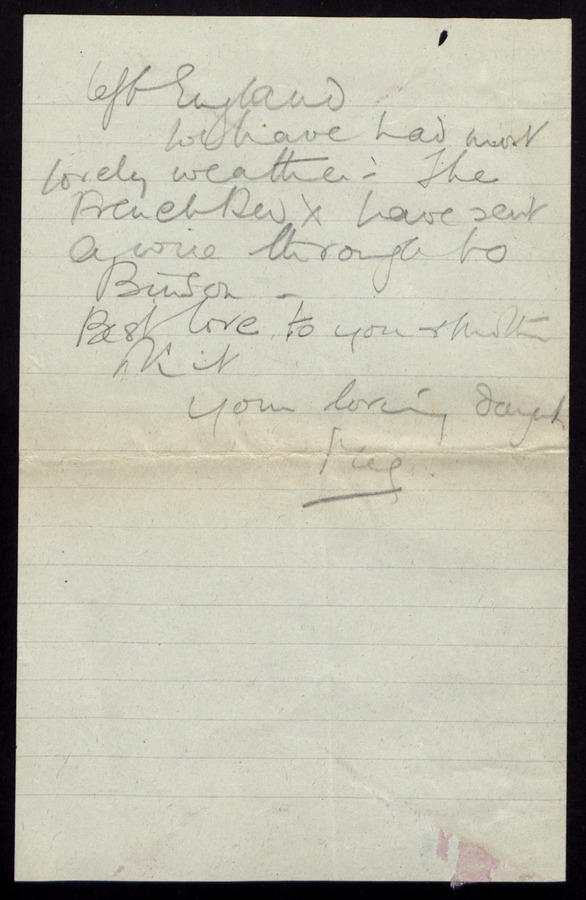 left England
We have had most
lovely weather: The
French Red X have sent
a wire through to
Best love to you & mother
your loving daught
Peg.